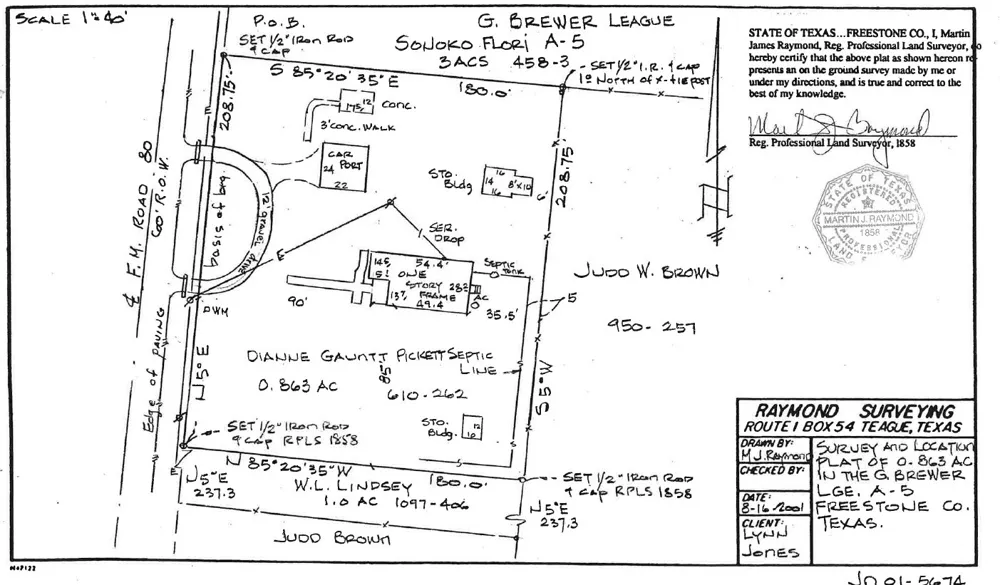 SCALE 1"=40'
P.O.B.
SET 1/2" IRON ROD
& CAP
G. BREWER LEAGUE
SONOKO FLORI A-5
3 ACS 458-3
SET 1/2" I.R. & CAP
1° NORTH OF X-TIE POST
S 85°20'35" E
180.0'
208.75'
175/12
CONC.
3' CONC. WALK
CAR
PORT
24
22
STO.
Bldg
16
14
8'x10
16
6'
208.75'
¢ F.M. ROAD 80
60' R.O.W.
basis of brg.
12' gravel drive
E
SER.
DROP
14.5
54.4'
5'
ONE
STORY
FRAME
28.3
13.7
49.4
SEPTIC
TANK
AC
35.5'
5
90'
PWM
JUDD W. BROWN
950-257
Edge of PAVING
N 5° E
DIANNE GAUNTT PICKETT
SEPTIC
LINE
0.863 AC
85'
610-262
S 5° W
STO.
Bldg.
12
10
SET 1/2" IRON ROD
& CAP RPLS 1858
N 85°20'35" W
180.0'
N 5° E
237.3
W.L. LINDSEY
1.0 AC 1097-406
SET 1/2" IRON ROD
& CAP RPLS 1858
N 5° E
237.3
JUDD BROWN
STATE OF TEXAS...FREESTONE CO., I, Martin
James Raymond, Reg. Professional Land Surveyor, do
hereby certify that the above plat as shown hereon re
presents an on the ground survey made by me or
under my directions, and is true and correct to the
best of my knowledge.
Martin J. Raymond
Reg. Professional Land Surveyor, 1858
STATE OF TEXAS
REGISTERED
MARTIN J. RAYMOND
1858
PROFESSIONAL
LAND SURVEYOR
RAYMOND SURVEYING
ROUTE 1 BOX 54 TEAGUE, TEXAS
DRAWN BY:
M J. Raymond
CHECKED BY:
DATE:
8-16-2001
CLIENT:
LYNN
JONES
SURVEY AND LOCATION
PLAT OF 0.863 AC
IN THE G. BREWER
LGE, A-5
FREESTONE CO.
TEXAS.
JO 01-5674